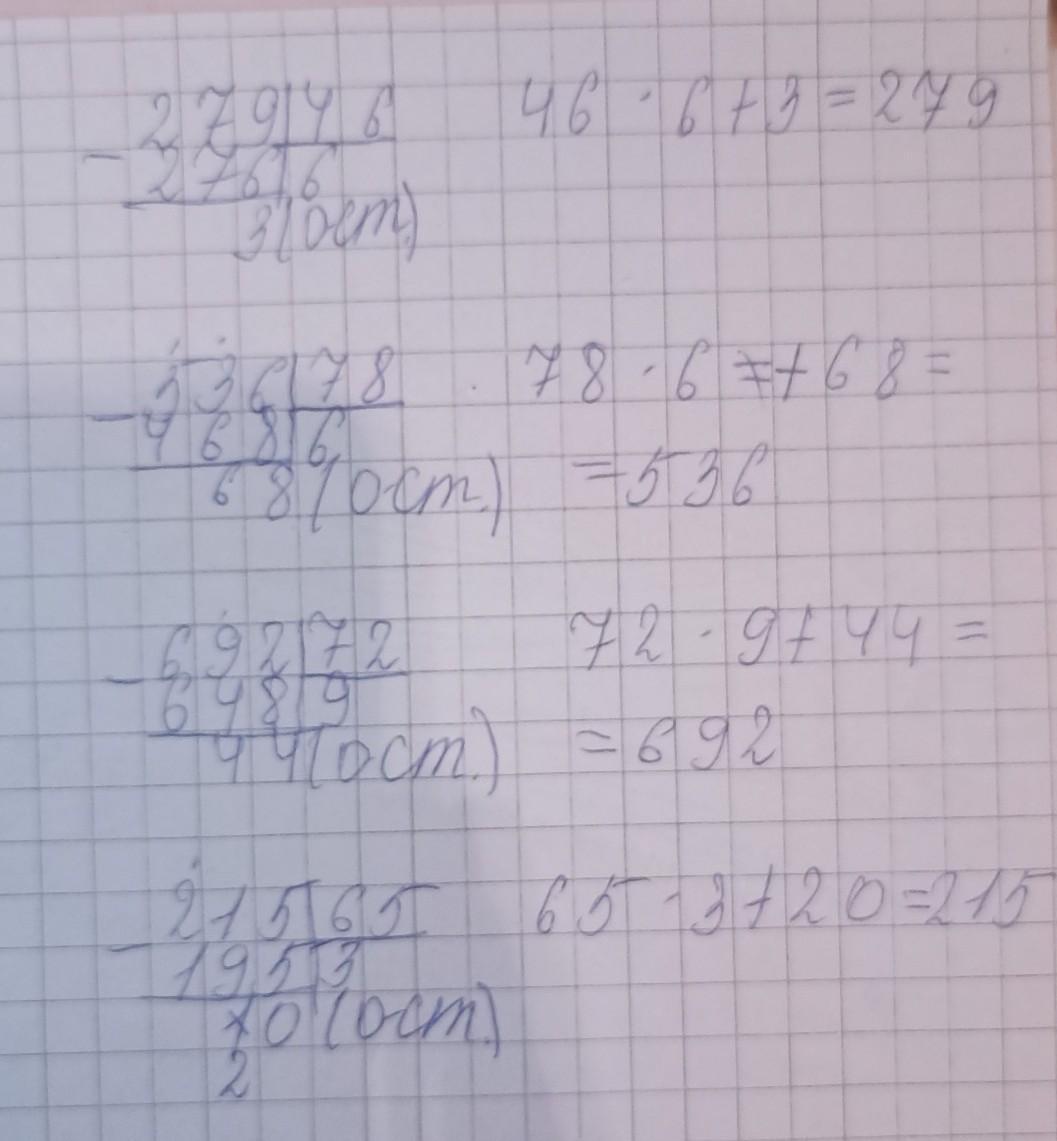 279|46 46 · 6 + 3 = 279
- 276|6
3 (ост.)
536|78 78 · 6 = + 68 =
- 468|6
68 (ост.) = 536
692|72 72 · 9 + 44 =
- 648|9
44 (ост.) = 692
215|65 65 · 3 + 20 = 215
- 195|3
0 (ост.)
2